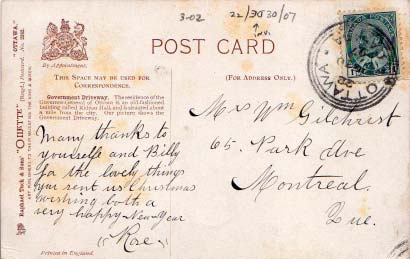 3-02
22/30 30/07
↑
inv.
"OTTAWA."
By Appointment.
POST CARD
THIS SPACE MAY BE USED FOR
CORRESPONDENCE.
(FOR ADDRESS ONLY.)
Government Driveway. The residence of the
Governor-General of Ottawa is an old-fashioned
building called Rideau Hall, and is situated about
a mile from the city. Our picture shows the
Government Driveway.
Raphael Tuck & Sons' "OILETTE" [Regd.] Postcard No. 2562.
OTTAWA
Many thanks to
yourself and Billy
for the lovely things
you sent us Christmas
wishing both a
very happy New-Year
Rae.
Mrs Wm Gilchrist
65. Park Ave
Montreal.
Que.
Printed in England.